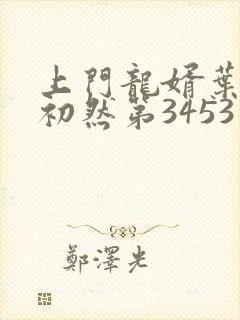 上門龍婿葉
初然第3453
鄭澤光